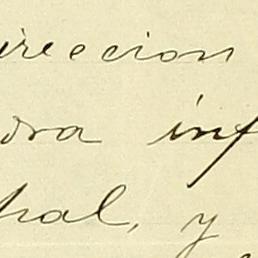 ireccion
dra inf
hal, y